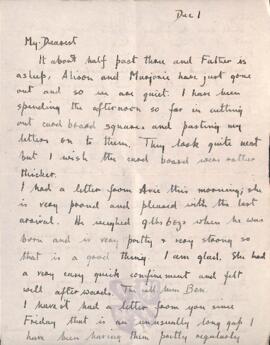 Dec 1
My Dearest
It about half past three and Father is
asleep, Alison and Marjorie have just gone
out and so we are quiet. I have been
spending the afternoon so far in cutting
out card board squares and pasting my
letters on to them. They look quite neat
but I wish the card board was rather
thicker.
I had a letter from Avie this morning; she
is very proud and pleased with the last
arrival. He weighed 9lbs 6ozs when he was
born and is very pretty & very strong so
that is a good thing. I am glad. She had
a very easy quick confinement and felt
well afterwards. call him Ben.
I havent had a letter from you since
Friday that is an unusually long gap I
have been having them pretty regularly